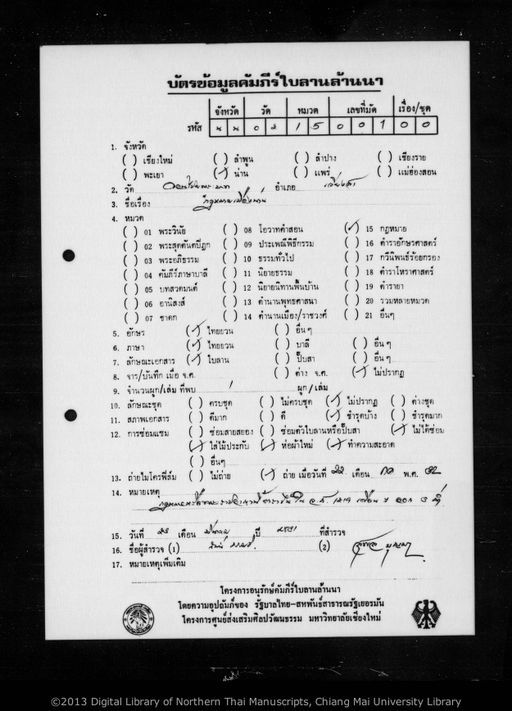 บัตรข้อมูลคัมภีร์ใบลานล้านนา
จังหวัด วัด หมวด เลขที่มัด เรื่อง/ชุด
รหัส น น 0 3 1 5 0 0 1 0 0
1. จังหวัด
( ) เชียงใหม่ ( ) ลำพูน ( ) ลำปาง ( ) เชียงราย
( ) พะเยา (✓) น่าน ( ) แพร่ ( ) แม่ฮ่องสอน
2. วัด อำเภอ
3. ชื่อเรื่อง
4. หมวด
( ) 01 พระวินัย ( ) 08 โอวาทคำสอน (✓) 15 กฎหมาย
( ) 02 พระสุตตันตปิฎก ( ) 09 ประเพณีพิธีกรรม ( ) 16 ตำราอักษรศาสตร์
( ) 03 พระอภิธรรม ( ) 10 ธรรมทั่วไป ( ) 17 กวีนิพนธ์ร้อยกรอง
( ) 04 คัมภีร์ภาษาบาลี ( ) 11 นิยายธรรม ( ) 18 ตำราโหราศาสตร์
( ) 05 บทสวดมนต์ ( ) 12 นิยายนิทานพื้นบ้าน ( ) 19 ตำรายา
( ) 06 อานิสงส์ ( ) 13 ตำนานพุทธศาสนา ( ) 20 รวมหลายหมวด
( ) 07 ชาดก ( ) 14 ตำนานเมือง/ราชวงศ์ ( ) 21 อื่นๆ
5. อักษร (✓) ไทยยวน ( ) อื่นๆ
6. ภาษา (✓) ไทยยวน ( ) บาลี ( ) อื่นๆ
7. ลักษณะเอกสาร (✓) ใบลาน ( ) ปั๊บสา ( ) อื่นๆ
8. จาร/บันทึก เมื่อ จ.ศ. ( ) ค่าง จ.ศ. (✓) ไม่ปรากฏ
9. จำนวนผูก/เล่ม ที่พบ 1 ผูก/เล่ม
10. ลักษณะชุด ( ) ครบชุด ( ) ไม่ครบชุด (✓) ไม่ปรากฏ ( ) ค่างชุด
11. สภาพเอกสาร ( ) ดีมาก ( ) ดี (✓) ชำรุดบ้าง ( ) ชำรุดมาก
12. การซ่อมแซม ( ) ซ่อมสายสยอง ( ) ซ่อมตัวใบลานหรือปั๊บสา (✓) ไม่ได้ซ่อม
(✓) ใส่ไม้ประกับ (✓) ห่อผ้าใหม่ (✓) ทำความสะอาด
( ) อื่นๆ
13. ถ่ายไมโครฟิล์ม ( ) ไม่ถ่าย (✓) ถ่าย เมื่อวันที่ 22 เดือน พ.ศ. 32
14. หมายเหตุ
15. วันที่ เดือน ปี ที่สำรวจ
16. ชื่อผู้สำรวจ (1) (2)
17. หมายเหตุเพิ่มเติม
โครงการอนุรักษ์คัมภีร์ใบลานล้านนา
โดยความอุปถัมภ์ของ รัฐบาลไทย-สหพันธ์สาธารณรัฐเยอรมัน
โครงการศูนย์ส่งเสริมศิลปวัฒนธรรม มหาวิทยาลัยเชียงใหม่
©2013 Digital Library of Northern Thai Manuscripts, Chiang Mai University Library